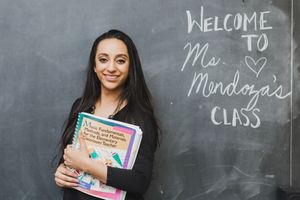 WELCOME
TO
Ms.
Mendoza's
CLASS
Music Fundamentals,
Methods, and Materials
for the Elementary
Classroom Teacher